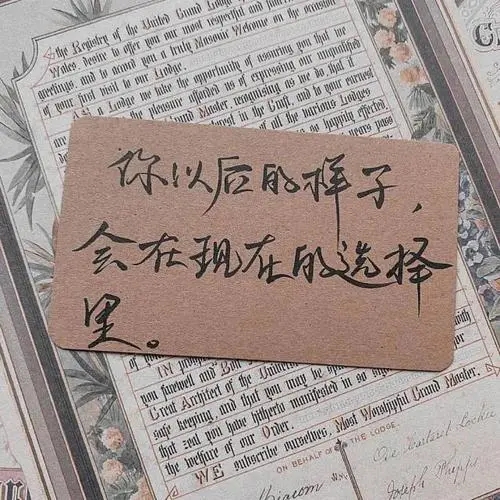 the Registry of the United Grand Lodge
Wales, desire to offer you our most respectful and
greetings, and to accord you a truly Masonic Welcome on the occasion
of your first visit to our Lodge.
As a Lodge we take the opportunity of assuring you that we
the pleasure afforded us of expressing our unqualified
Grand Master, recognising as we do, that I
interest in the Craft, and to your earnest
of all the various Lodges
so happily effected,
years pass
你以后的样子，
会在现在的选择
里。
IN
you farewell and
Great Architect of the Universe
safe keeping, and that you may be
that zeal you have hitherto manifested in so
the welfare of our Order.
WE subscribe ourselves, Most Worshipful Grand Master,
ON BEHALF OF THE LODGE.
Joseph